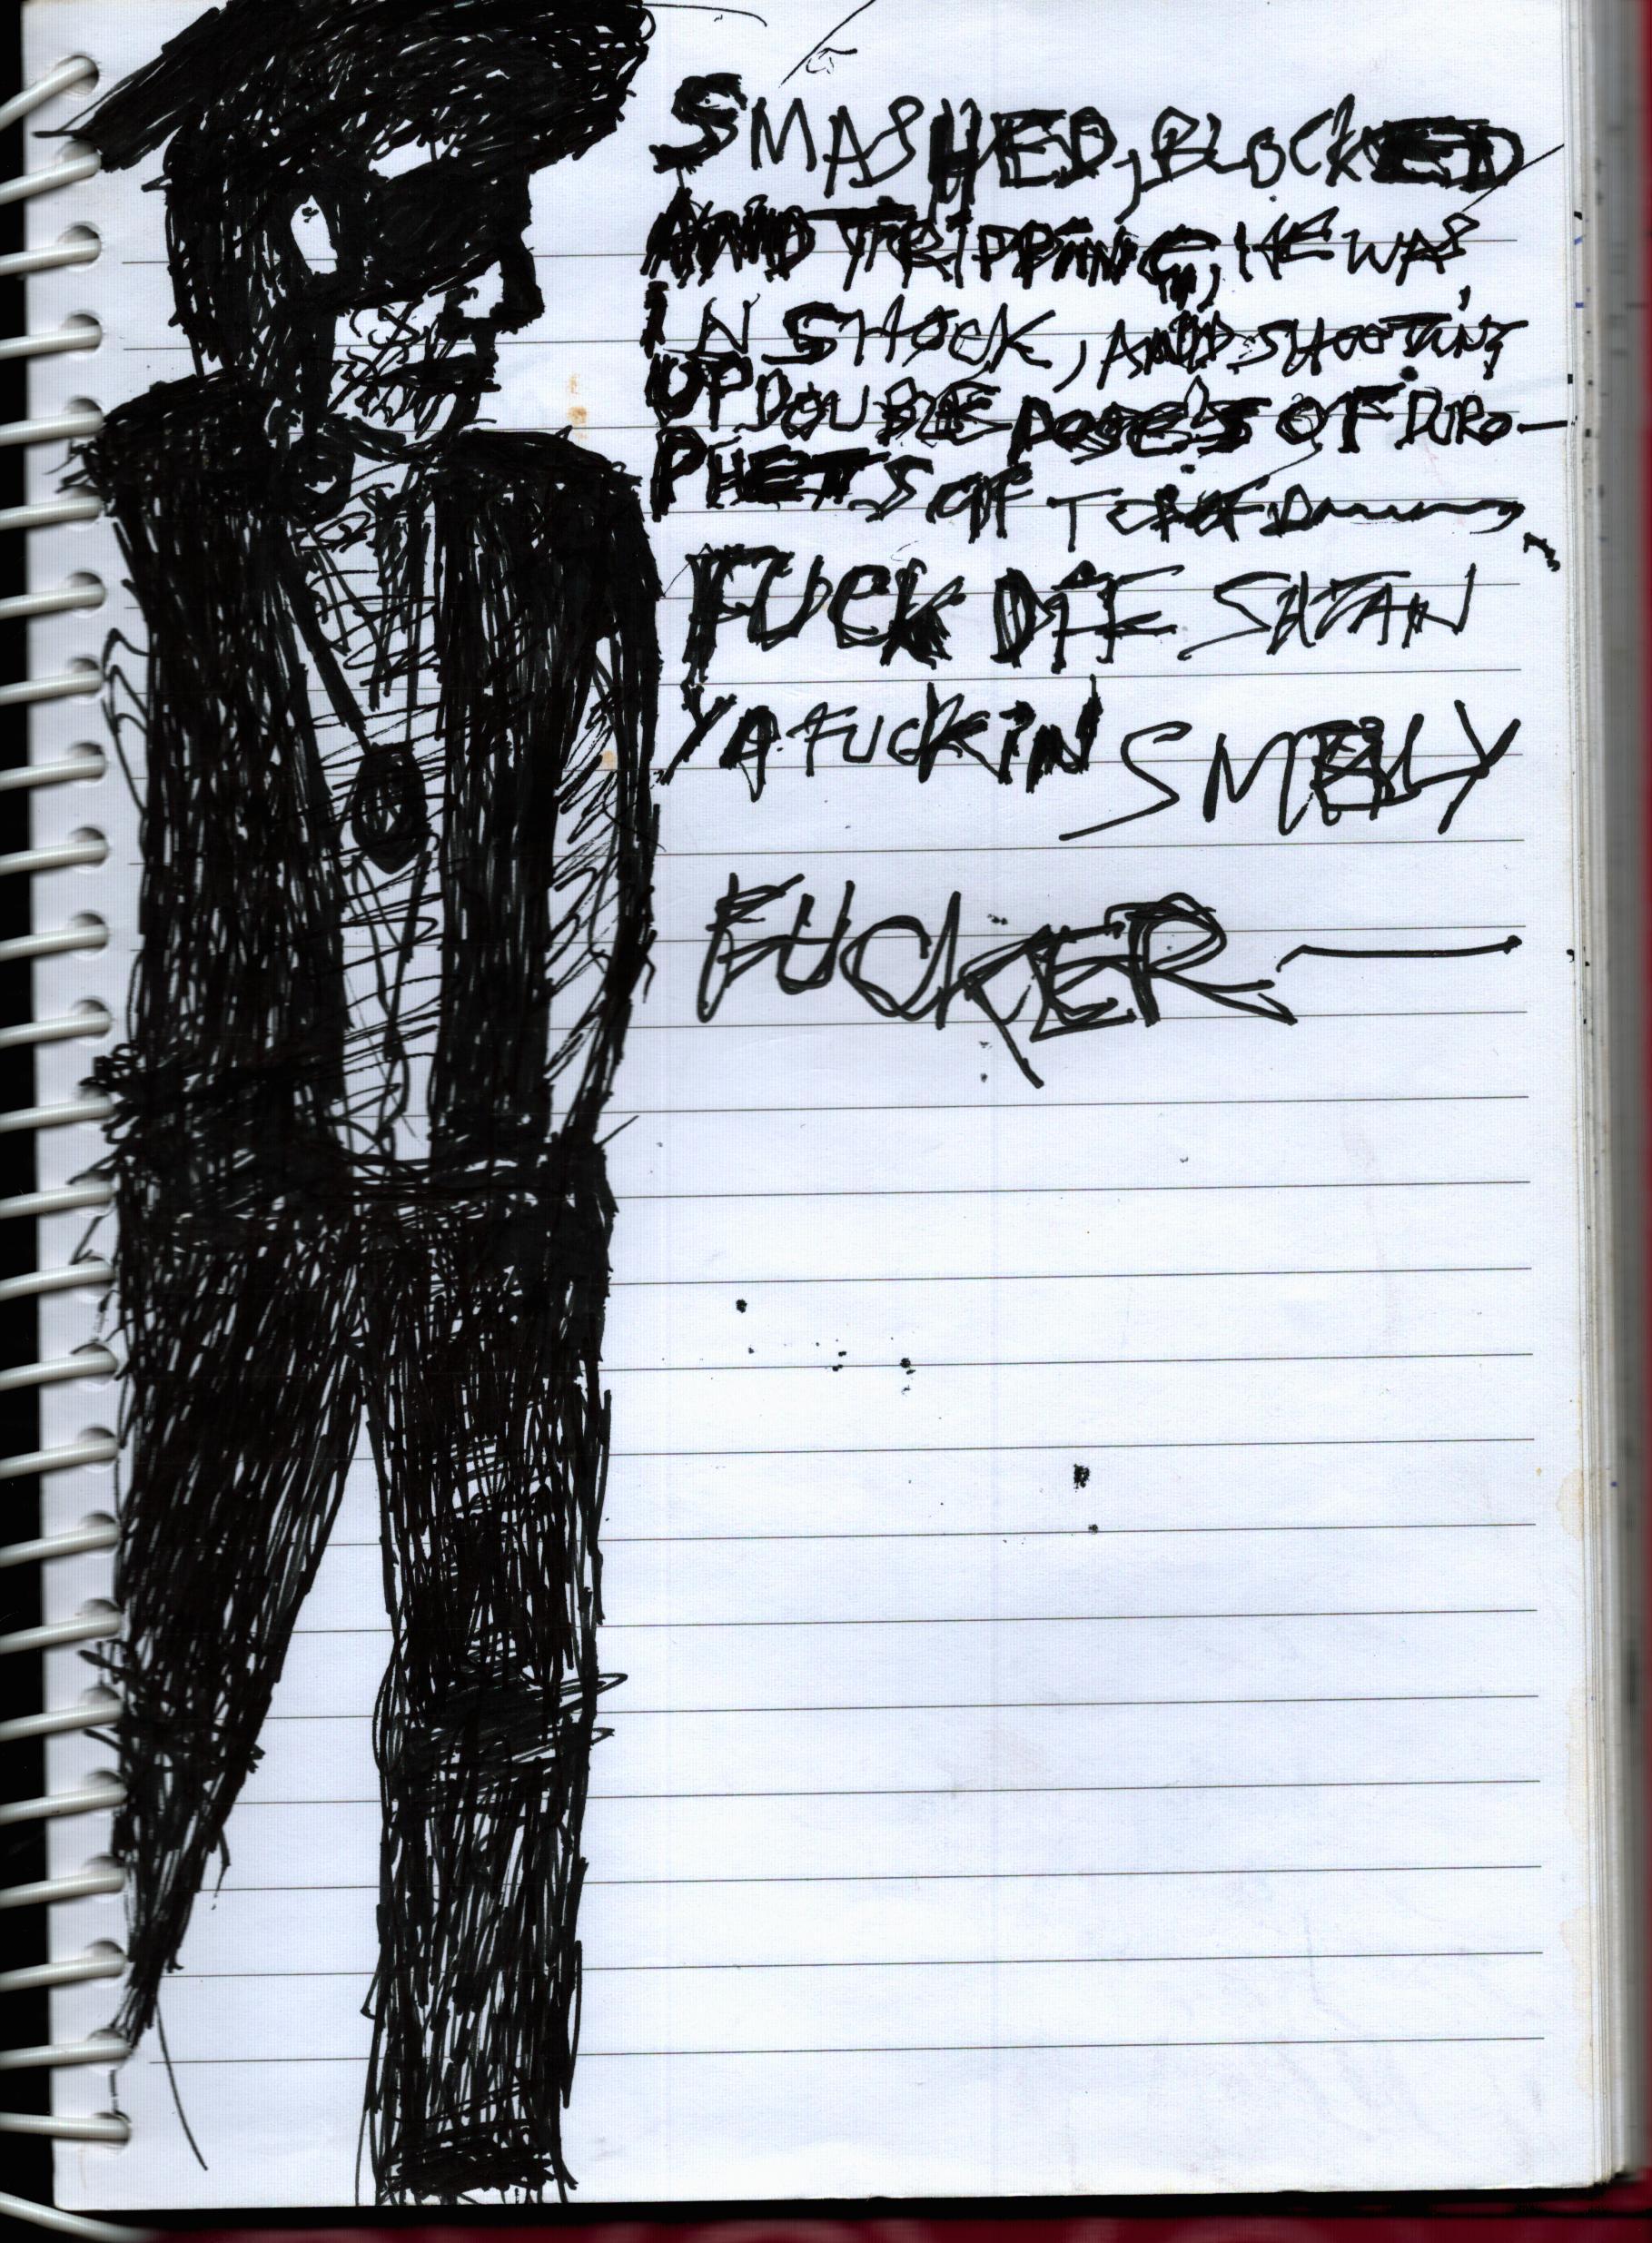 SMASHED, BLOCKED
AND TRIPPING, HE WAS
IN SHOCK, AND SHOOTING
UP DOUBLE DOSE'S OF DURO-
PHETS OF
FUCK OFF SATAN
YA FUCKIN SMELLY
FUCKER —